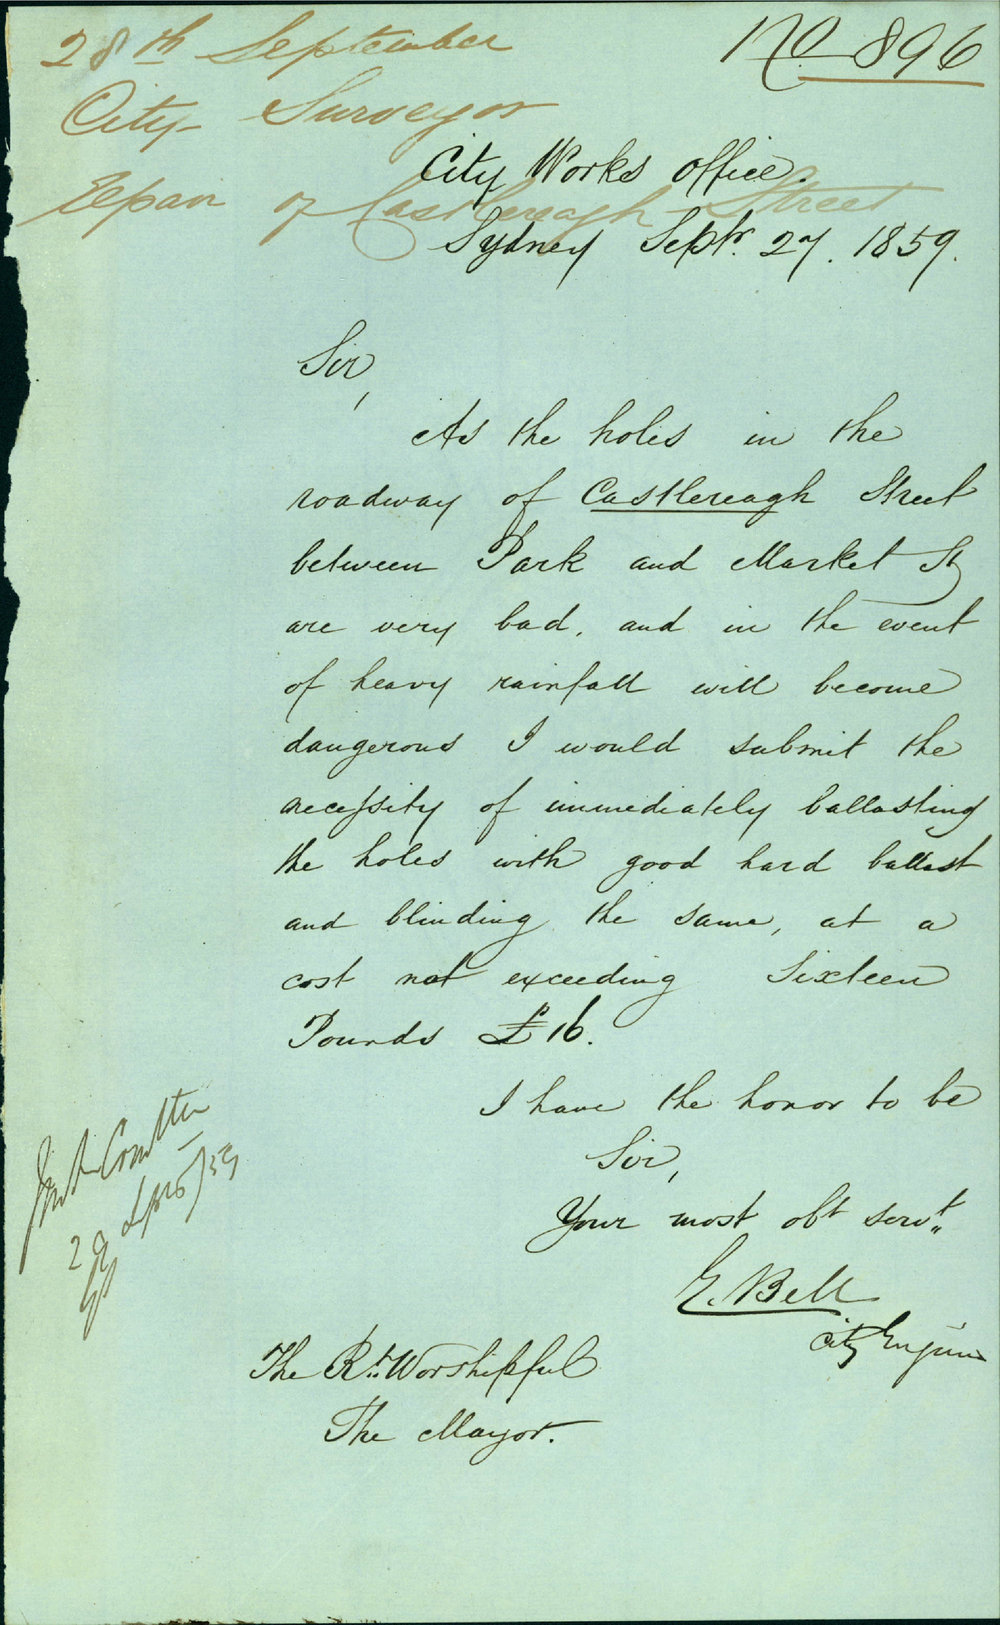 28th September
No 896
City Surveyor
Repair of Castlereagh Street
City Works Office.
Sydney Septr. 27. 1859.
Sir,
As the holes in the
roadway of Castlereagh Street
between Park and Market St
are very bad, and in the event
of heavy rainfall will become
dangerous I would submit the
necessity of immediately ballasting
the holes with good hard ballast
and blinding the same, at a
cost not exceeding Sixteen
Pounds £16.
I have the honor to be
Sir,
Your most obt servt
E. Bell
City Engineer
Comttee
29 Sept/59
The Rt. Worshipful
The Mayor.